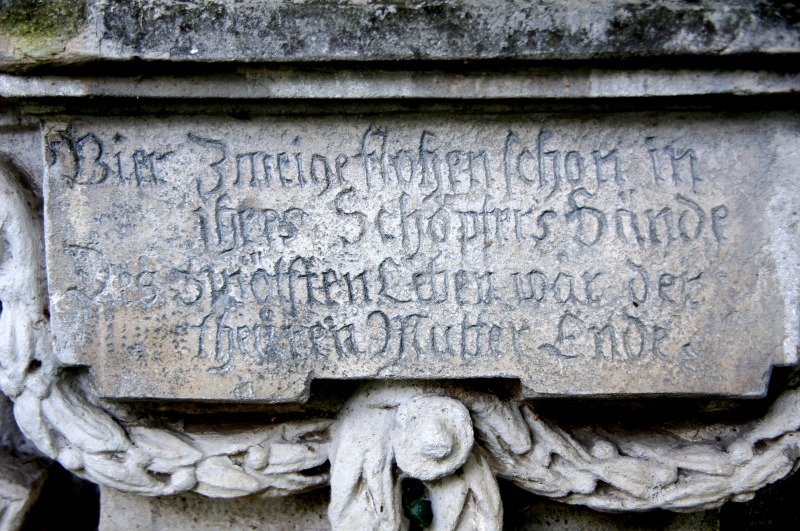 Vier Zweige flohen schon in
ihres Schöpfers Hände
Des zwölften Leben war der
theuren Mutter Ende.